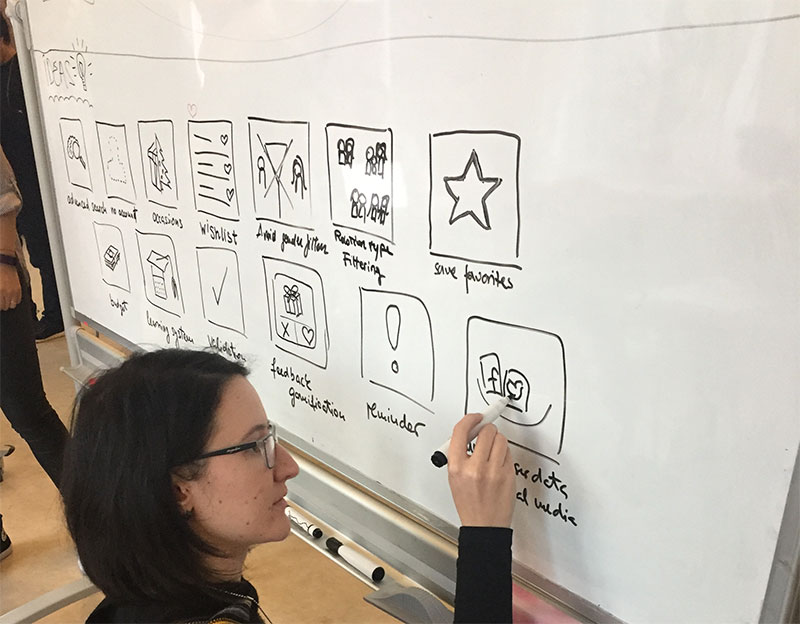 advanced search
no account
occasions
wishlist
Avoid gender filters
Relation type
Filtering
save favorites
budget
learning system
Validation
feedback
gamification
X
reminder
f
user data
al media